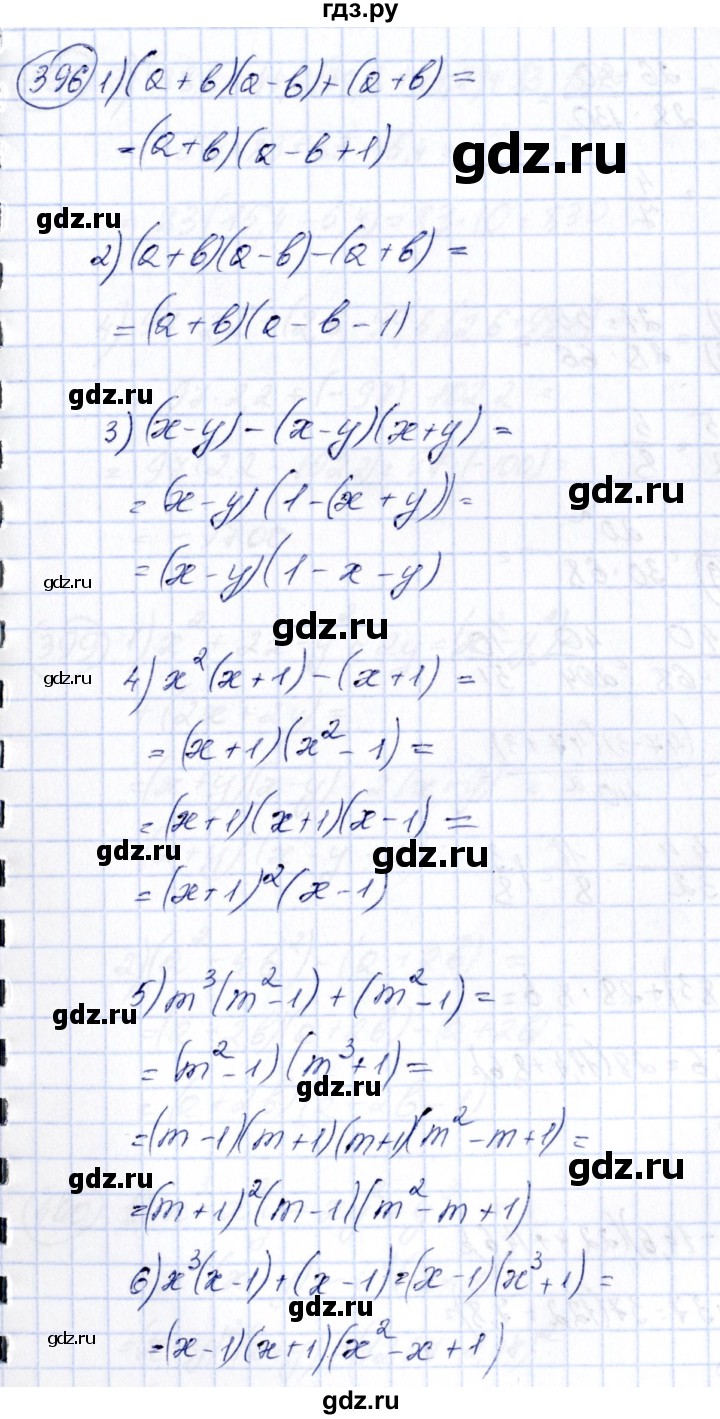 гдз.ру
396 1) (a+b)(a-b)+(a+b)=
=(a+b)(a-b+1)
gdz.ru
gdz.ru
2) (a+b)(a-b)-(a+b)=
=(a+b)(a-b-1)
gdz.ru
3) (x-y)-(x-y)(x+y)=
gdz.ru
=(x-y)(1-(x+y))=
gdz.ru
=(x-y)(1-x-y)
gdz.ru
gdz.ru
4) x²(x+1)-(x+1)=
=(x+1)(x²-1)=
=(x+1)(x+1)(x-1)=
gdz.ru
gdz.ru
=(x+1)²(x-1)
5) m³(m²-1)+(m²-1)=
gdz.ru
=(m²-1)(m³+1)=
gdz.ru
=(m-1)(m+1)(m+1)(m²-m+1)=
gdz.ru
gdz.ru
=(m+1)²(m-1)(m²-m+1)
6) x³(x-1)+(x-1)=(x-1)(x³+1)=
gdz.ru
gdz.ru
=(x-1)(x+1)(x²-x+1)
gdz.ru